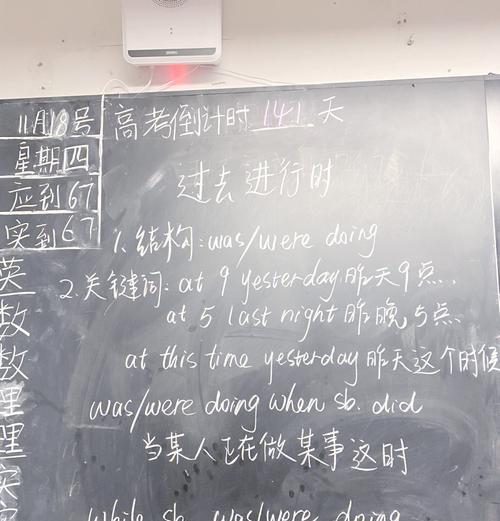 11月18号
星期四
应到67
实到67
英
数
数
理
理
实
高考倒计时 141 天
过去进行时
1.结构:was/were doing
2.关键词:at 9 yesterday.昨天9点..
at 5 last night 昨晚5点.
at this time yesterday 昨天这个时候
was/were doing when sb. did
当某人正在做某事这时
while sb. was/were doing